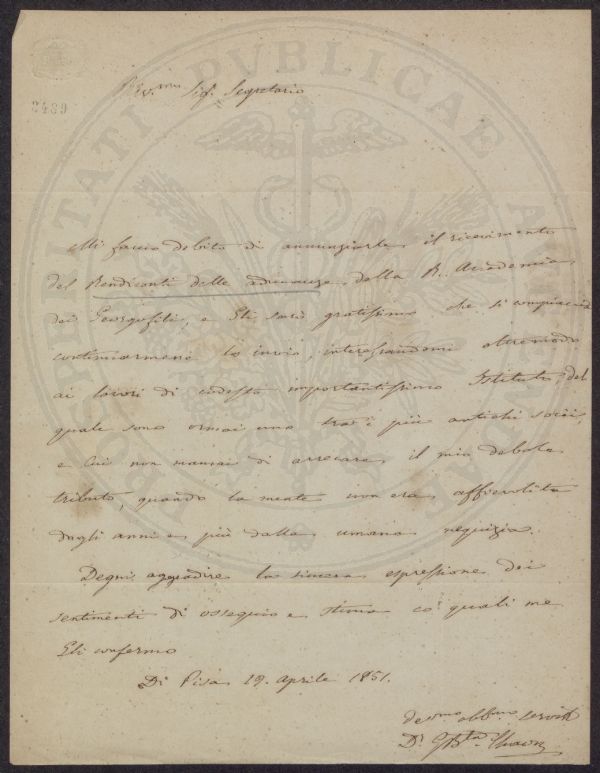 3489
Rev.mo Sig. Segretario
Mi faccio debito di annunziarle il ricevimento
del Rendiconti delle adunanze della R. Accademia
dei Georgofili, e Gli sarò gratissimo che si compiaccia
continuarmene lo invio interessandomi oltremodo
ai lavori di codesto importantissimo Istituto, del
quale sono ormai uno tra i più antichi socii,
e cui non mancai di arrecare il mio debole
tributo, quando la mente non era affievolita
dagli anni e più dalla umana nequizia.
Degni aggradire la sincera espressione dei
sentimenti di ossequio e stima co' quali me
Gli confermo
Di Pisa 19. Aprile 1851.
dev.mo obb.mo servit
Dr. GBta
POSTERITATI PVBLICAE